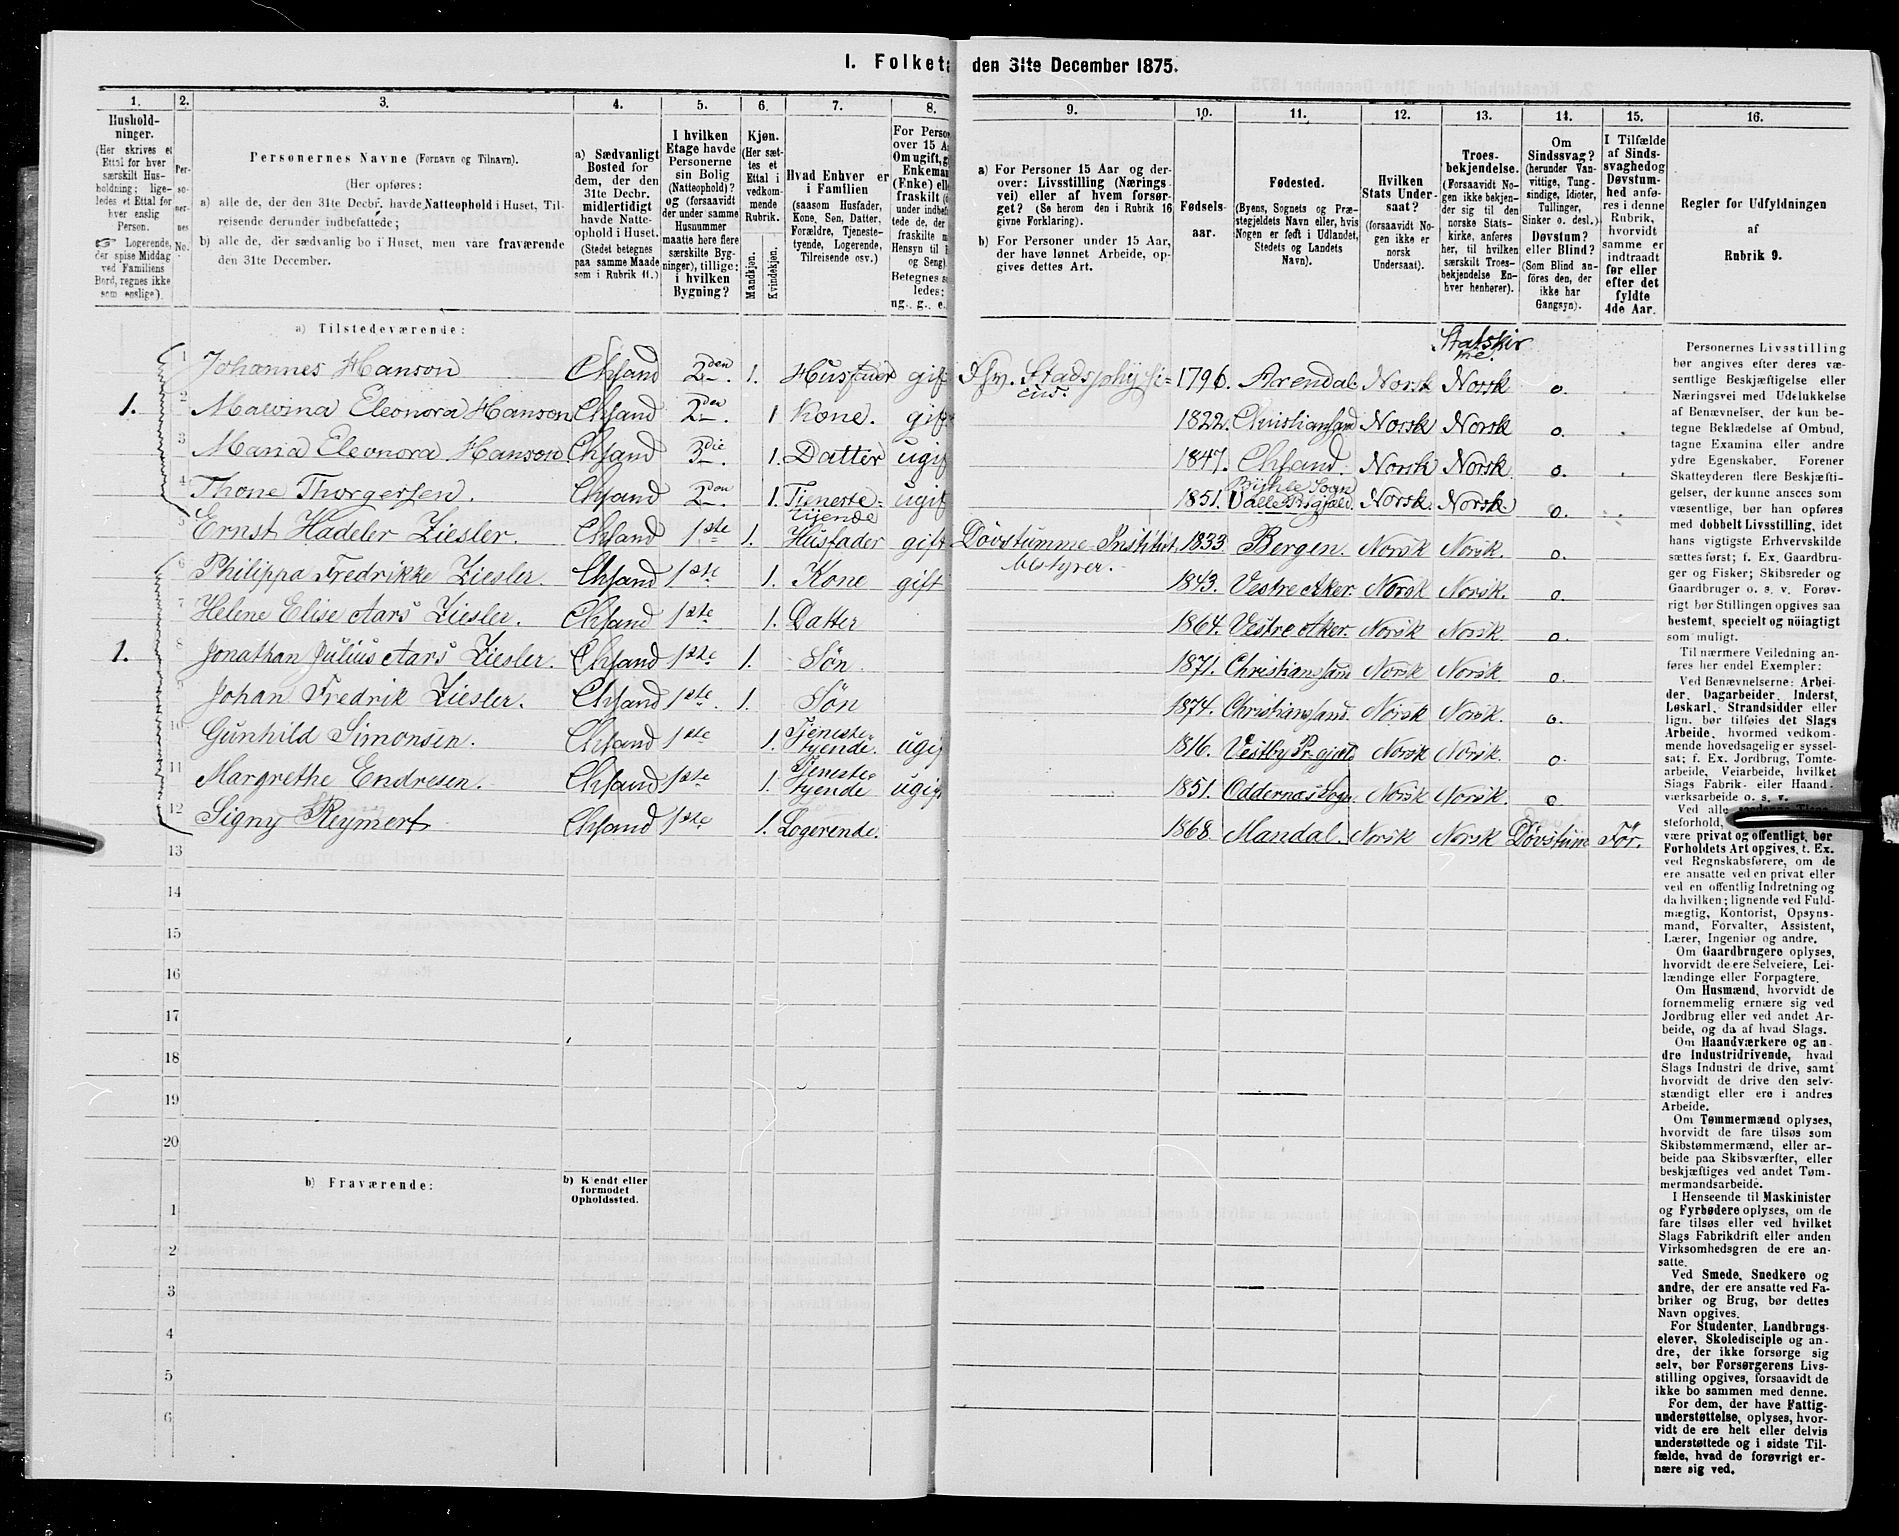 I. Folketæ den 31te December 1875.
1. 2. 3. 4. 5. 6. 7. 8. 9. 10. 11. 12. 13. 14. 15. 16.
Hushold-
ninger.
(Her skrives et
Ettal for hver
særskilt Hus-
holdning; lige-
ledes et Ettal for
hver enslig
Person.
☞ Logerende,
der spise Middag
ved Familiens
Bord, regnes ikke
som enslige).
Per-
so-
ner-
nes
No.
Personernes Navne (Fornavn og Tilnavn).
(Her opføres:
a) alle de, der den 31te Decbr. havde Natteophold i Huset, Til-
reisende derunder indbefattede;
b) alle de, der sædvanlig bo i Huset, men vare fraværende
den 31te December.
a) Sædvanligt
Bosted for
dem, der den
31te Decbr.
midlertidigt
havde Natte-
ophold i Huset.
(Stedet betegnes
paa samme Maade
som i Rubrik 11.)
I hvilken
Etage havde
Personerne
sin Bolig
(Natteophold)?
og (forsaavidt
der under samme
Husnummer
maatte høre flere
særskilte Byg-
ninger), tillige:
i hvilken
Bygning?
Kjøn.
(Her sæt-
tes et
Ettal i
vedkom-
mende
Rubrik.
Mandkjøn.
Kvindekjøn.
Hvad Enhver er
i Familien
(saasom Husfader,
Kone, Søn, Datter,
Forældre, Tjeneste-
tyende, Logerende,
Tilreisende osv.)
For Perso
over 15 A
Om ugift, g
Enkeman
(Enke) elle
fraskilt (
under indbef
tede de, der
fraskilte m
Hensyn til B
og Seng).
Betegnes s
ledes:
ug., g., e.
a) For Personer 15 Aar og der-
over: Livsstilling (Nærings-
vei) eller af hvem forsør-
get? (Se herom den i Rubrik 16
givne Forklaring).
b) For Personer under 15 Aar,
der have lønnet Arbeide, op-
gives dettes Art.
Fødsels-
aar.
Fødested.
(Byens, Sognets og Præ-
stegjeldets Navn eller, hvis
Nogen er født i Udlandet,
Stedets og Landets
Navn).
Hvilken
Stats Under-
saat?
(forsaavidt No-
gen ikke er
norsk
Undersaat).
Troes-
bekjendelse.
(Forsaavidt No-
gen ikke bekjen-
der sig til den
norske Stats-
kirke, anføres
her, til hvilken
særskilt Troes-
bekjendelse En-
hver henhører).
Om
Sindssvag?
(herunder Van-
vittige, Tung-
sindige, Idioter,
Tullinger,
Sinker o. desl.)
Døvstum?
eller Blind?
(Som Blind an-
føres den, der
ikke har
Gangsyn).
I Tilfælde
af Sinds-
svaghed og
Døvstum-
hed anfø-
res i denne
Rubrik,
hvorvidt
samme er
indtraadt
før eller
efter det
fyldte
4de Aar.
Regler for Udfyldningen
af
Rubrik 9.
a) Tilstedeværende:
Statskir
ke.
1 Johannes Hanson Chsand 2den. 1. Husfader gift Stadsphysi= 1796. Arendal. Norsk Norsk o.
cus.
1. 2 Malvina Eleonora Hanson Chsand 2den 1 Kone. gift 1822. Christiansand Norsk Norsk o.
3 Maria Eleonora Hanson. Chsand 3die. 1. Datter ugif 1847. Chsand. Norsk Norsk o.
4 Thone Thorgersen. Chsand 2den. 1. Tjeneste= tyende ugif 1851. Bykle Sogn Valle Prgjæld. Norsk. Norsk. o.
5 Ernst Hadeler Ziesler. Chsand 1ste 1. Husfader gift Døvstumme Institut, 1833 Bergen. Norsk Norsk. o.
bestyrer.
6 Philippa Fredrikke Ziesler. Chsand 1ste. 1. Kone gift 1843. Vestre Aker. Norsk Norsk. o.
7 Helene Elise Aars Ziesler. Chsand 1ste 1. Datter 1864. Vestre Aker. Norsk Norsk. o.
1. 8 Jonathan Julius Aars Ziesler. Chsand 1ste 1. Søn. 1871. Christiansand Norsk Norsk o.
9 Johan Fredrik Ziesler. Chsand 1ste. 1. Søn 1874. Christianssand. Norsk Norsk. o.
10 Gunhild Simonsen. Chsand 1ste 1. Tjeneste= tyende. ugif 1816. Vestby Pr.gjæld Norsk Norsk. o.
11 Margrethe Endresen. Chsand 1ste 1. Tjeneste= tyende ugift 1851. Oddernes Sogn Norsk Norsk. o.
12 Signy Reymert Chsand 1ste 1. Logerende. 1868. Mandal. Norsk Norsk Døvstum Før.
13
14
15
16
17
18
19
20
b) Fraværende:
b) Kjendt eller
formodet
Opholdssted.
1
2
3
4
5
6
Personernes Livsstilling
bør angives efter deres væ-
sentlige Beskjæftigelse eller
Næringsvei med Udelukkelse
af Benævnelser, der kun be-
tegne Beklædelse af Ombud,
tagne Examina eller andre
ydre Egenskaber. Forener
Skatteyderen flere Beskjæfti-
gelser, der kunne ansees som
væsentlige, bør han opføres
med dobbelt Livsstilling, idet
hans vigtigste Erhvervskilde
sættes først; f. Ex. Gaardbru-
ger og Fisker; Skibsreder og
Gaardbruger o. s. v. Forøv-
rigt bør Stillingen opgives saa
bestemt, specielt og nöiagtigt
som muligt.
Til nærmere Veiledning an-
føres her endel Exempler:
Ved Benævnelserne: Arbei-
der, Dagarbeider, Inderst,
Løskarl, Strandsidder eller
lign. bør tilføies det Slags
Arbeide, hvormed vedkom-
mende hovedsagelig er syssel-
sat; f. Ex. Jordbrug, Tomte-
arbeide, Veiarbeide, hvilket
Slags Fabrik- eller Haand-
værksarbeide o. s. v.
Ved alle
steforhold,
være privat og offentligt, bør
Forholdets Art opgives, t. Ex.
ved Regnskabsførere, om de
ere ansatte ved en privat eller
ved en offentlig Indretning og
da hvilken; lignende ved Fuld-
mægtig, Kontorist, Opsyns-
mand, Forvalter, Assistent,
Lærer, Ingeniør og andre.
Om Gaardbrugere oplyses,
hvorvidt de ere Selveiere, Lei-
lændinge eller Forpagtere.
Om Husmænd, hvorvidt de
fornemmelig ernære sig ved
Jordbrug eller ved andet Ar-
beide, og da af hvad Slags.
Om Haandværkere og an-
dre Industridrivende, hvad
Slags Industri de drive, samt
hvorvidt de drive den selv-
stændigt eller ere i andres
Arbeide.
Om Tømmermænd oplyses,
hvorvidt de fare tilsøs som
Skibstømmermænd, eller ar-
beide paa Skibsværfter, eller
beskjæftiges ved andet Tøm-
mermandsarbeide.
I Henseende til Maskinister
og Fyrbødere oplyses, om de
fare tilsøs eller ved hvilket
Slags Fabrikdrift eller anden
Virksomhedsgren de ere an-
satte.
Ved Smede, Snedkere og
andre, der ere ansatte ved Fa-
briker og Brug, bør dettes
Navn opgives.
For Studenter, Landbrugs-
elever, Skoledisciple og an-
dre, der ikke forsørge sig
selv, bør Forsørgerens Livs-
stilling opgives, forsaavidt de
ikke bo sammen med denne.
For dem, der have Fattig-
understøttelse, oplyses, hvor-
vidt de ere helt eller delvis
understøttede og i sidste Til-
fælde, hvad de forøvrigt er-
nære sig ved.